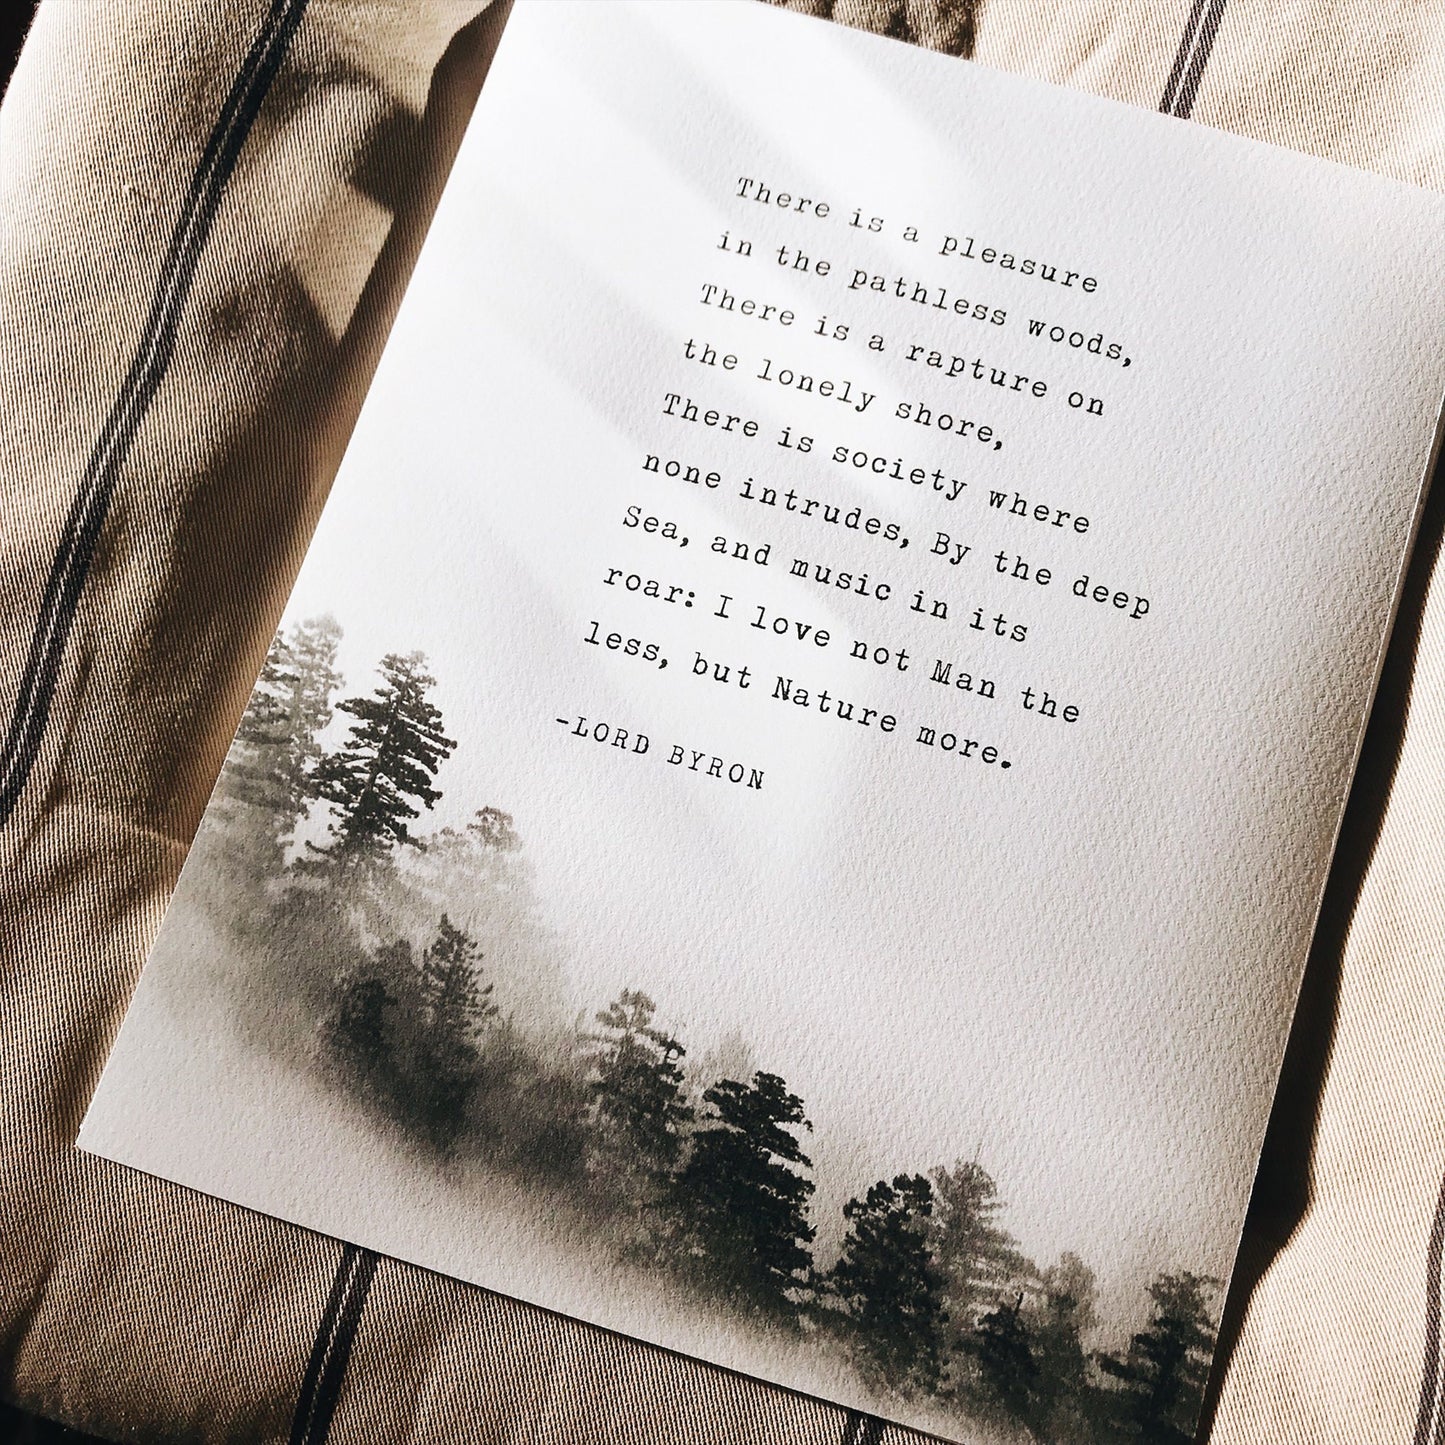 There is a pleasure
in the pathless woods,
There is a rapture on
the lonely shore,
There is society where
none intrudes, By the deep
Sea, and music in its
roar: I love not Man the
less, but Nature more.
-LORD BYRON